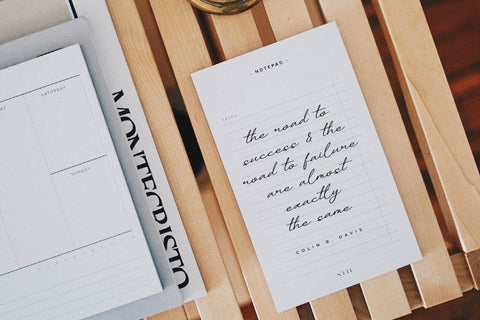 SATURDAY
SUNDAY
MONTECRISTO
- NOTEPAD -
TASKS
the road to
success & the
road to failure
are almost
exactly
the same
COLIN R. DAVIS